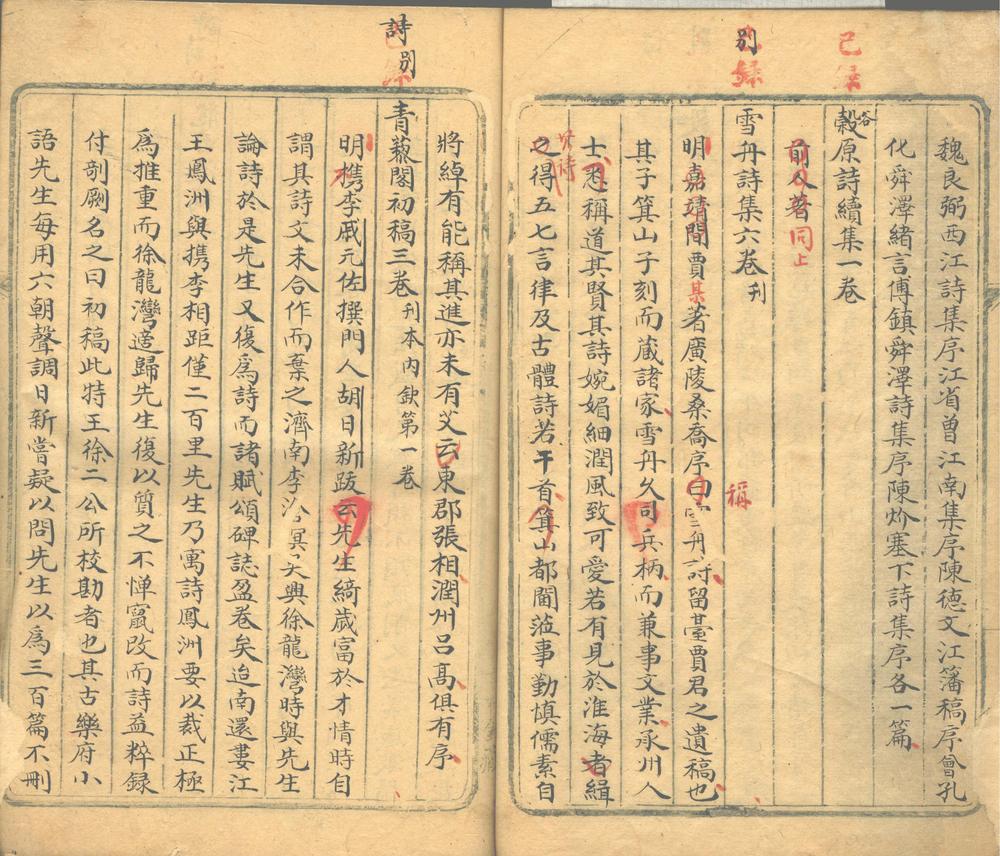 魏良弼西江詩集序江省曾江南集序陳德文江藩稿序曾孔
化舜澤緒言傅鎮舜澤詩集序陳炌塞下詩集序各一篇
已录
穀原詩續集一卷
谷
前人著同上
別
录
雪舟詩集六卷刊
明嘉靖間賈某著廣陵桑喬序曰雪舟詩留臺賈君之遺稿也
稱
其子箕山子刻而蔵諸家雪舟久司兵柄而兼事文業承州人
士悉稱道其賢其詩婉媚細潤風致可愛若有見於淮海者緝
其詩
之得五七言律及古體詩若干首箕山都閫蒞事勤慎儒素自
將綽有能稱其進亦未有艾云東郡張相潤州呂高俱有序
詩別
青藜閣初稿三卷刊本内欽第一卷
明檇李戚元佐撰門人胡日新跋云先生綺歲富於才情時自
謂其詩文未合作而棄之濟南李滄溟吳興徐龍灣時與先生
論詩於是先生又復爲詩而諸賦頌碑誌盈卷矣迨南還婁江
王鳳洲與携李相距僅二百里先生乃寓詩鳳洲要以裁正極
爲推重而徐龍灣適歸先生復以質之不憚竄改而詩益粹録
付剞劂名之曰初稿此特王徐二公所校勘者也其古樂府小
語先生每用六朝聲調日新嘗疑以問先生以爲三百篇不刪